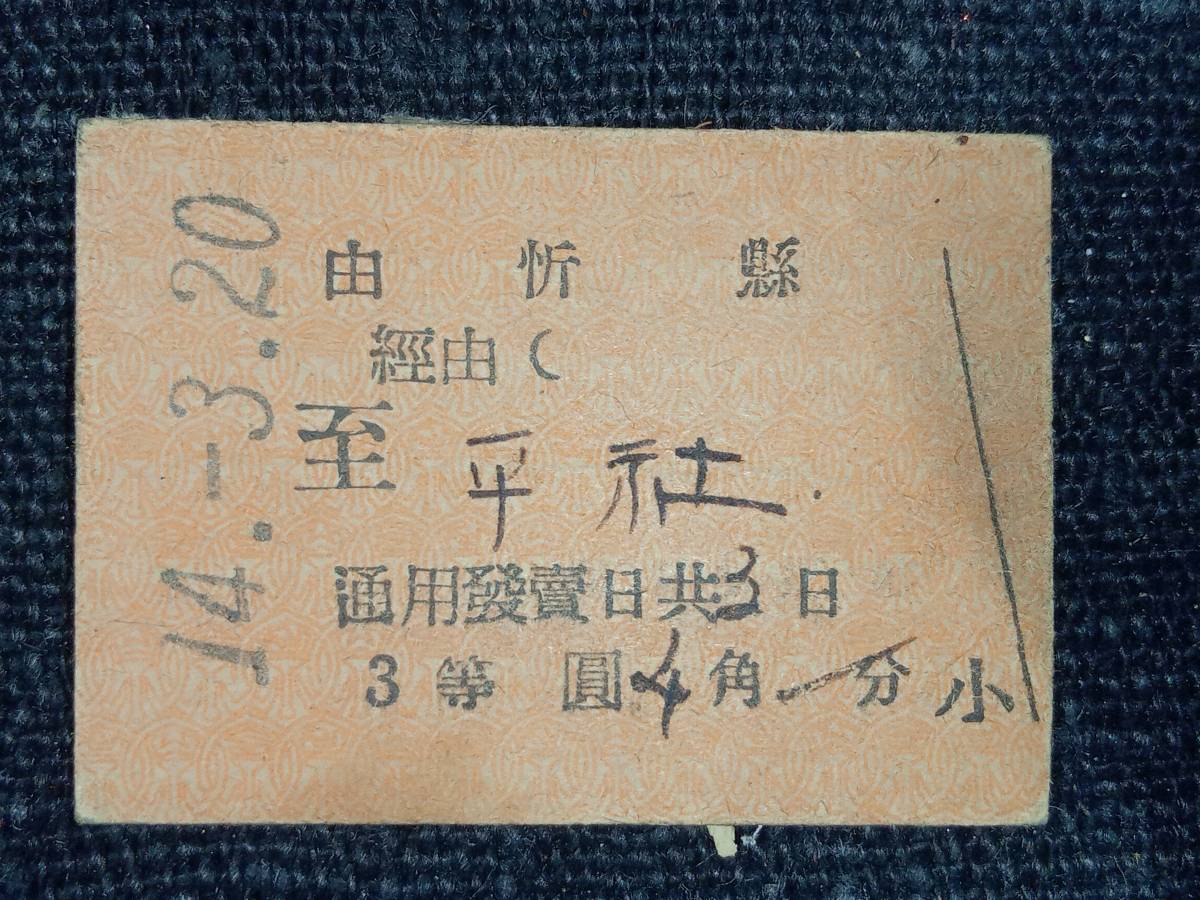 14.-3.20
由 忻 縣
經由(
至 平社.
通用發賣日共3日
3等 圓4角一分 小